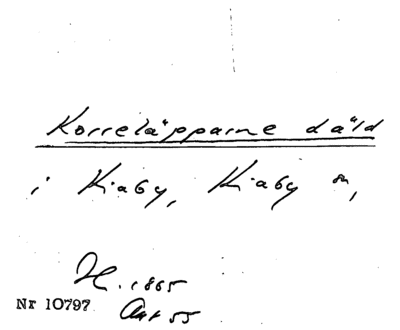 Korreläpparne däld
i Kiaby, Kiaby sn,
H. 1865
Nr 10797
Ant 55